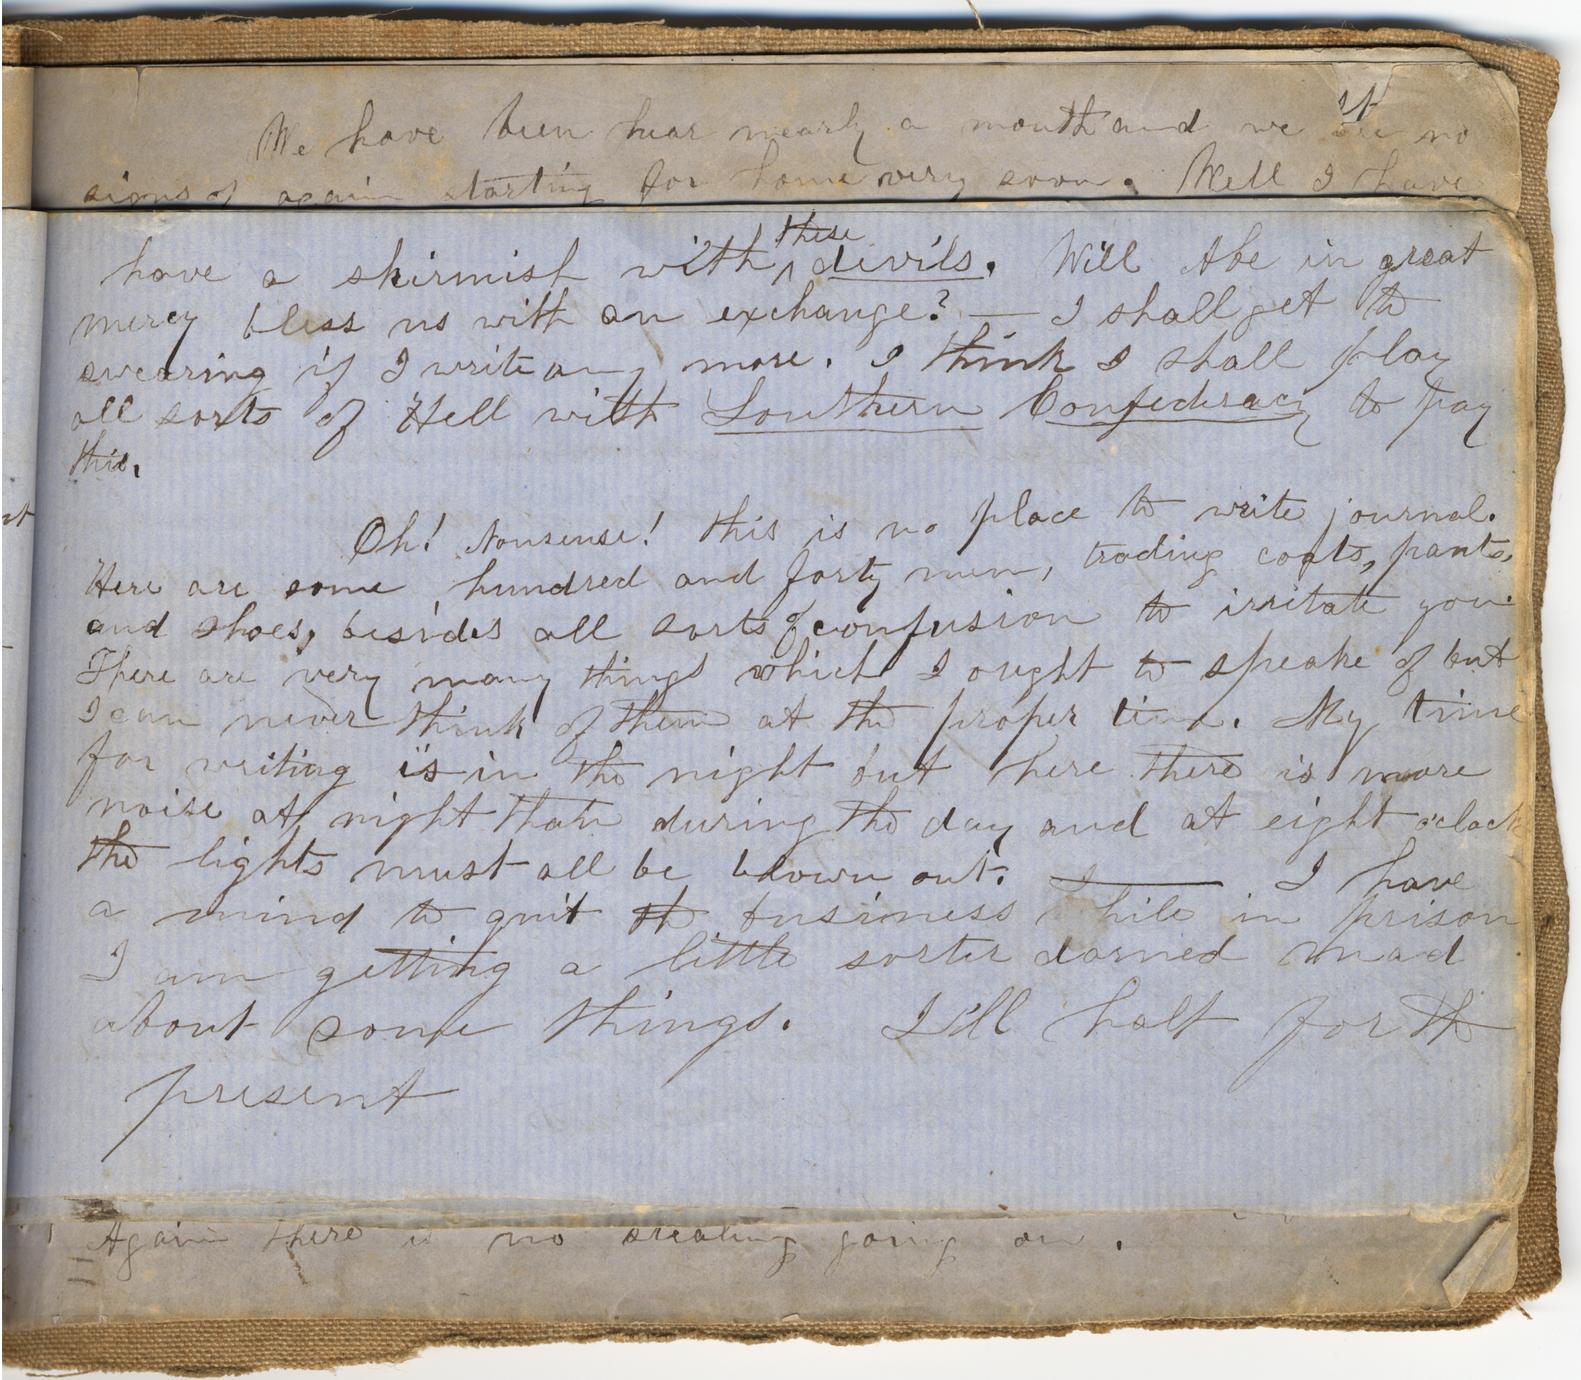 We have been hear nearly a month and we see no
signs of again starting for home very soon. Well I have
have a skirmish with these devils. Will Abe in great
mercy bless us with an exchange? — I shall get to
swearing if I write any more. I think I shall play
all sorts of Hell with Southern Confederacy to pay
this.
Oh! Nonsense! This is no place to write journal.
Here are some hundred and forty men, trading coats, pants,
and shoes, besides all sorts of confusion to irritate you.
There are very many things which I ought to speake of but
I can never think of them at the proper time. My time
for writing is in the night but here there is more
noise at night than during the day and at eight o'clock
the lights must all be blown out. — I have
a mind to quit the business while in prison
I am getting a little sorter darned mad
about some things. I'll halt for th
present
Again there is no going on.